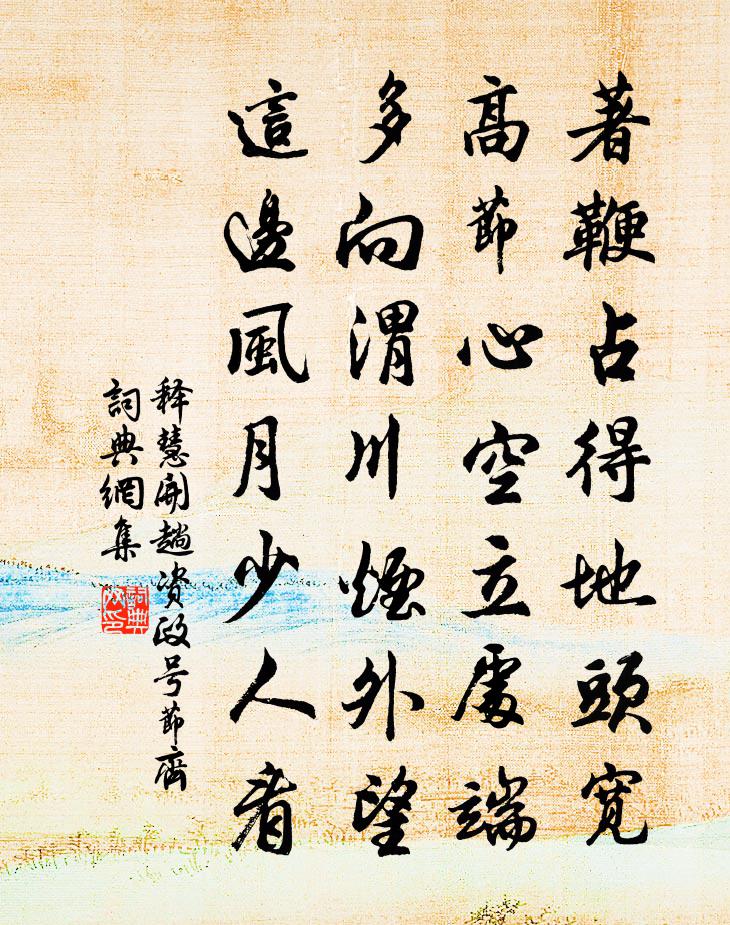 著鞭占得地頭寬
高節心空立處端
多向渭川煙外望
這邊風月少人看
释慧開趙资政号節齋
詞典網集